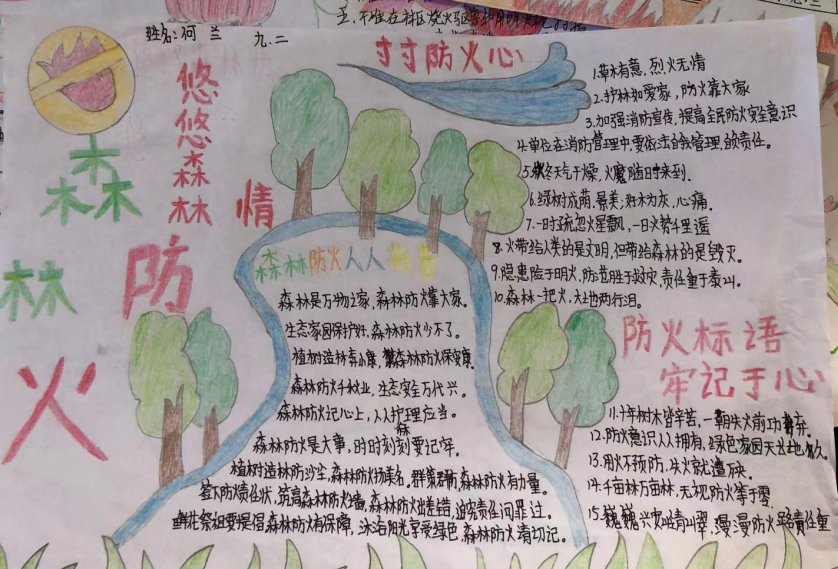 五、不准在林区
姓名:何兰 九.二
寸寸防火心
悠悠森林
情
森林
防
火
1.草木有意,烈火无情
2.护林如爱家,防火靠大家
3.加强消防宣传,提高全民防火安全意识
4.单位在消防管理中,要依法自我管理,自负责任。
5.秋冬天气干燥,火魔随时来到.
6.绿树成荫,景美,林木为灰,心痛.
7.一时疏忽火星飘,一日火势千里遥
8.火带给人类的是文明,但带给森林的是毁灭.
9.隐患险于明火,防范胜于救灾,责任重于泰山.
10.森林一把火,大地两行泪。
森林防火人人有责
森林是万物之家,森林防火靠大家.
生态家园保护好,森林防火少不了。
植树造林奔小康,森林防火保安康
森林防火千秋业,生态安全万代兴。
森林防火记心上,人人护理应当。
林
森林防火是大事,时时刻刻要记牢.
植树造林防沙尘,森林防火扬美名,群策群防,森林防火有力量。
签下防火责任状,筑高森林防火墙,森林防火出差错,追究责任问罪过.
鲜花祭祖要提倡森林防火有保障,沐浴阳光享受绿色,森林防火请切记。
防火标语
牢记于心
11.十年树木皆辛苦,一朝失火前功弃.
12.防火意识人人拥有,绿色家园天长地久.
13.用火不预防,失火就遭殃.
14.千亩林万亩林,无视防火等于零.
15.巍巍兴安岭青山翠,漫漫防火路责任重